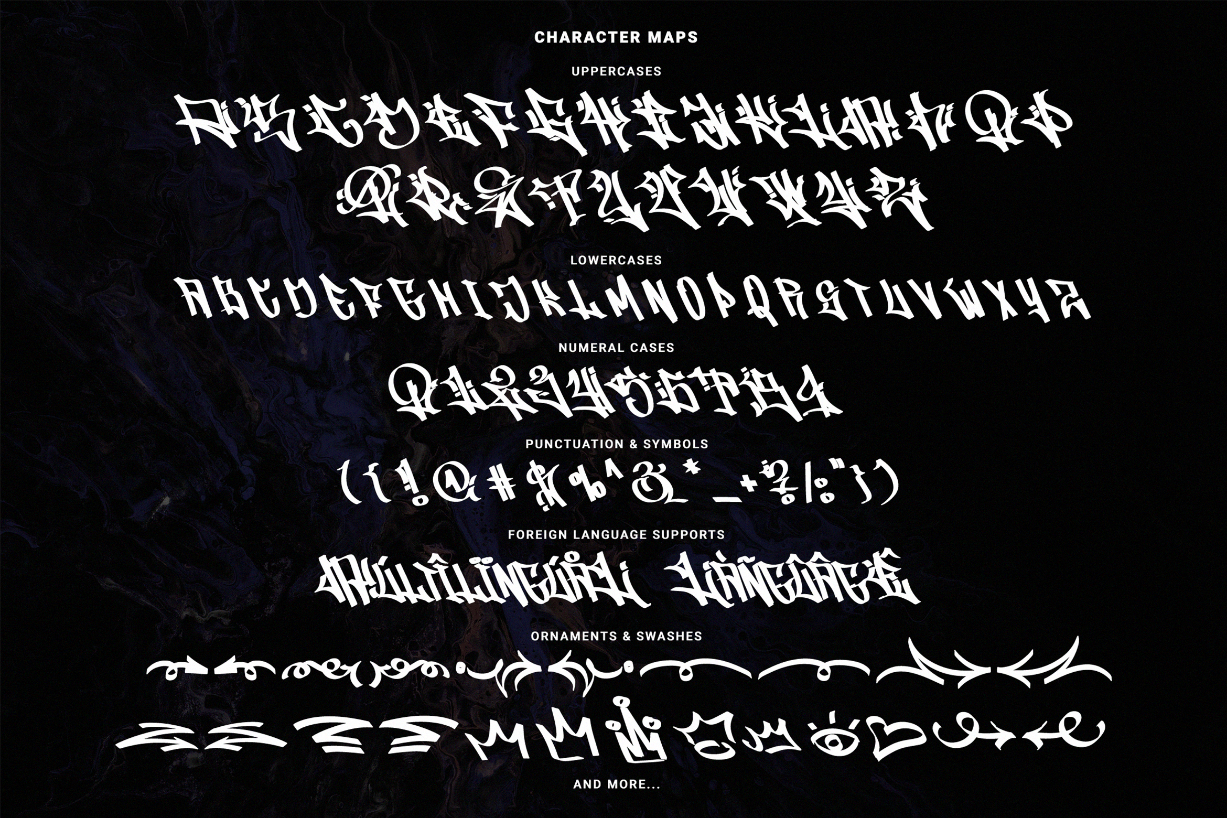 CHARACTER MAPS
UPPERCASES
ABCDEFGHIJKLMNOP
QRSTUVWXYZ
LOWERCASES
ABCDEFGHIJKLMNOPQRSTUVWXYZ
NUMERAL CASES
0123456789
PUNCTUATION & SYMBOLS
({!@#$%^&*_+?/:"})
FOREIGN LANGUAGE SUPPORTS
MÚLTÎLÏNGÚÅL LÀÑGÛÂGÊ
ORNAMENTS & SWASHES
AND MORE...